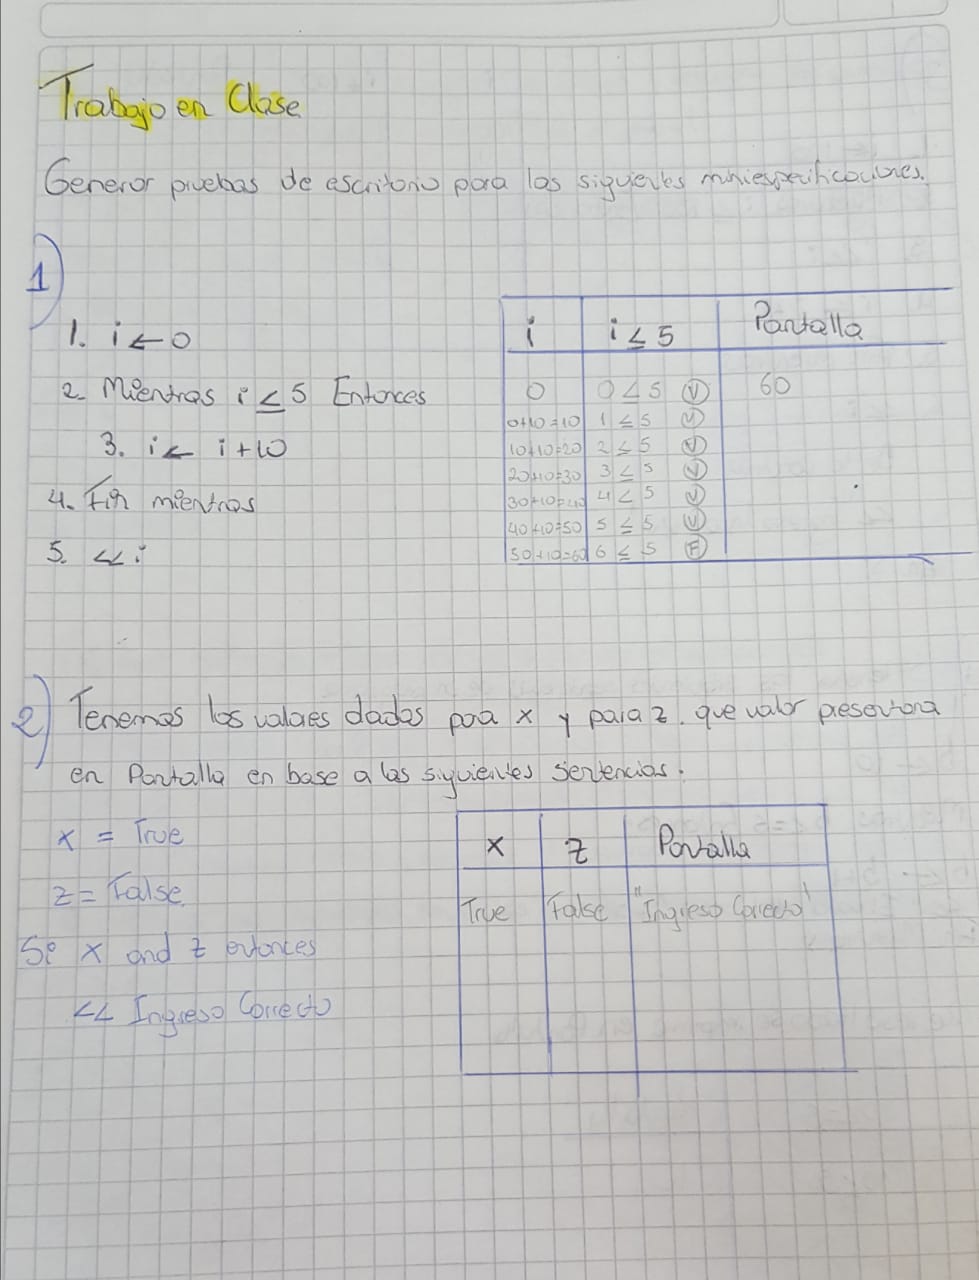 Trabajo en Clase
Generar pruebas de escritorio para las siguientes miniespecificaciones.
1)
1. i ← 0
2. Mientras i ≤ 5 Entonces
3. i ← i + 10
4. Fin mientras
5. << i
i | i ≤ 5 | Pantalla
0 | 0 ≤ 5 (V) | 60
0+10=10 | 1 ≤ 5 (V)
10+10=20 | 2 ≤ 5 (V)
20+10=30 | 3 ≤ 5 (V)
30+10=40 | 4 ≤ 5 (V)
40+10=50 | 5 ≤ 5 (V)
50+10=60 | 6 ≤ 5 (F)
2) Tenemos los valores dados para x y para z. que valor presentara
en Pantalla en base a las siguientes sentencias.
x = True
z = False.
Si x and z entonces
<< Ingreso Correcto
x | z | Pantalla
True | False | "Ingreso Correcto"